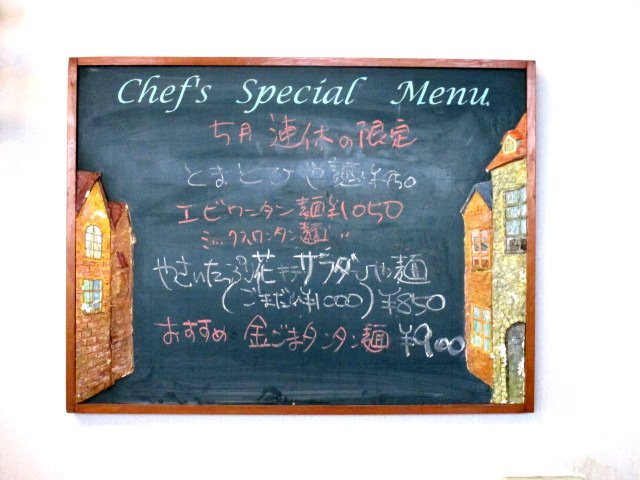 Chef's Special Menu
5月 連休の限定
とまとひや麺 ¥950
エビワンタン麺 ¥1050
ミックスワンタン麺 〃
やさいたっぷり花キチサラダひや麺
(ごまだれ¥1000) ¥850
おすすめ 金ごまタンタン麺 ¥900